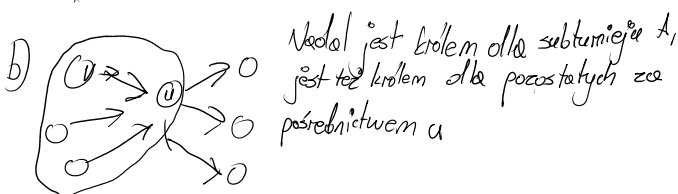 b)
v
u
Nadal jest królem dla subturnieju A,
jest też królem dla pozostałych za
pośrednictwem u